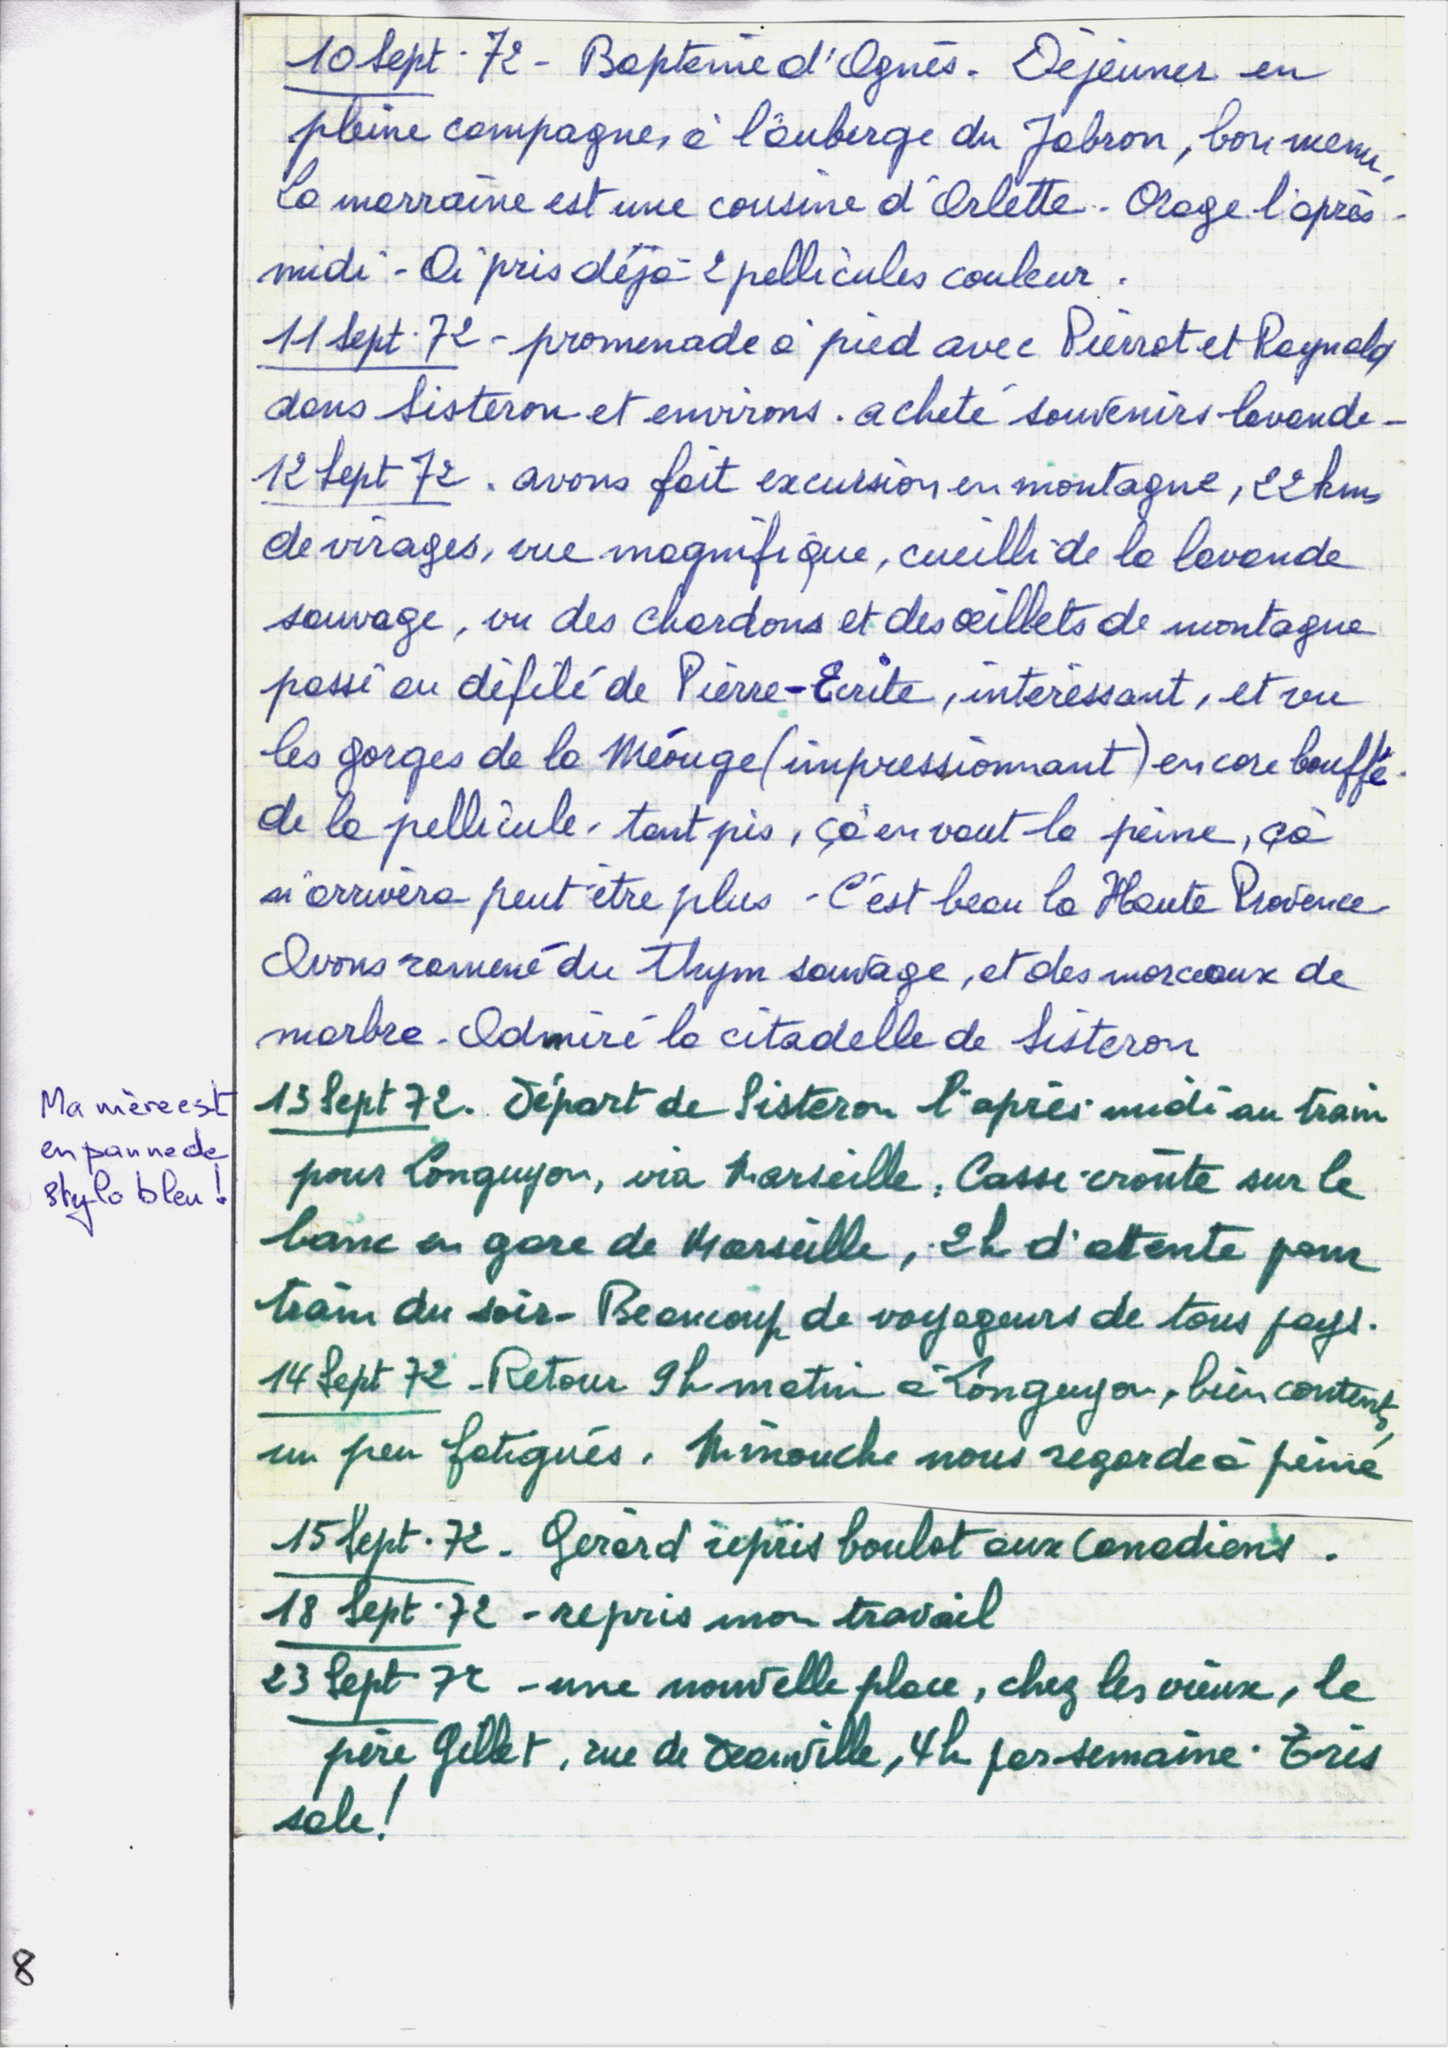 10 Sept. 72 - Baptême d'Agnès. Déjeuner en
pleine campagne, à l'auberge du Jabron, bon menu,
la marraine est une cousine d'Arlette - Orage l'après-
midi - Ai pris déjà 2 pellicules couleur.
11 Sept. 72 - promenade à pied avec Pierrot et Raynald
dans Sisteron et environs. acheté souvenirs lavande -
12 Sept 72. avons fait excursion en montagne, 22 kms
de virages, vue magnifique, cueilli de la lavande
sauvage, vu des chardons et des œillets de montagne
passé au défilé de Pierre-Ecrite, intéressant, et vu
les gorges de la Méouge (impressionnant) encore bouffé
de la pellicule, tant pis, çà en vaut la peine, çà
n'arrivera peut être plus - C'est beau la Haute Provence
Avons ramené du thym sauvage, et des morceaux de
marbre - Admiré la citadelle de Sisteron
Ma mère est
en panne de
stylo bleu !
13 Sept 72. Départ de Sisteron l'après-midi au train
pour Longuyon, via Marseille. Casse-croûte sur le
banc en gare de Marseille, 2h d'attente pour
train du soir - Beaucoup de voyageurs de tous pays.
14 Sept 72 - Retour 9h matin à Longuyon, bien contents,
un peu fatigués. Minouche nous regarde à peine
15 Sept. 72 - Gérard repris boulot aux Canadiens.
18 Sept. 72 - repris mon travail
23 Sept 72 - une nouvelle place, chez les vieux, le
père Gillet, rue de Deauville, 4h par semaine. Très
sale !
8